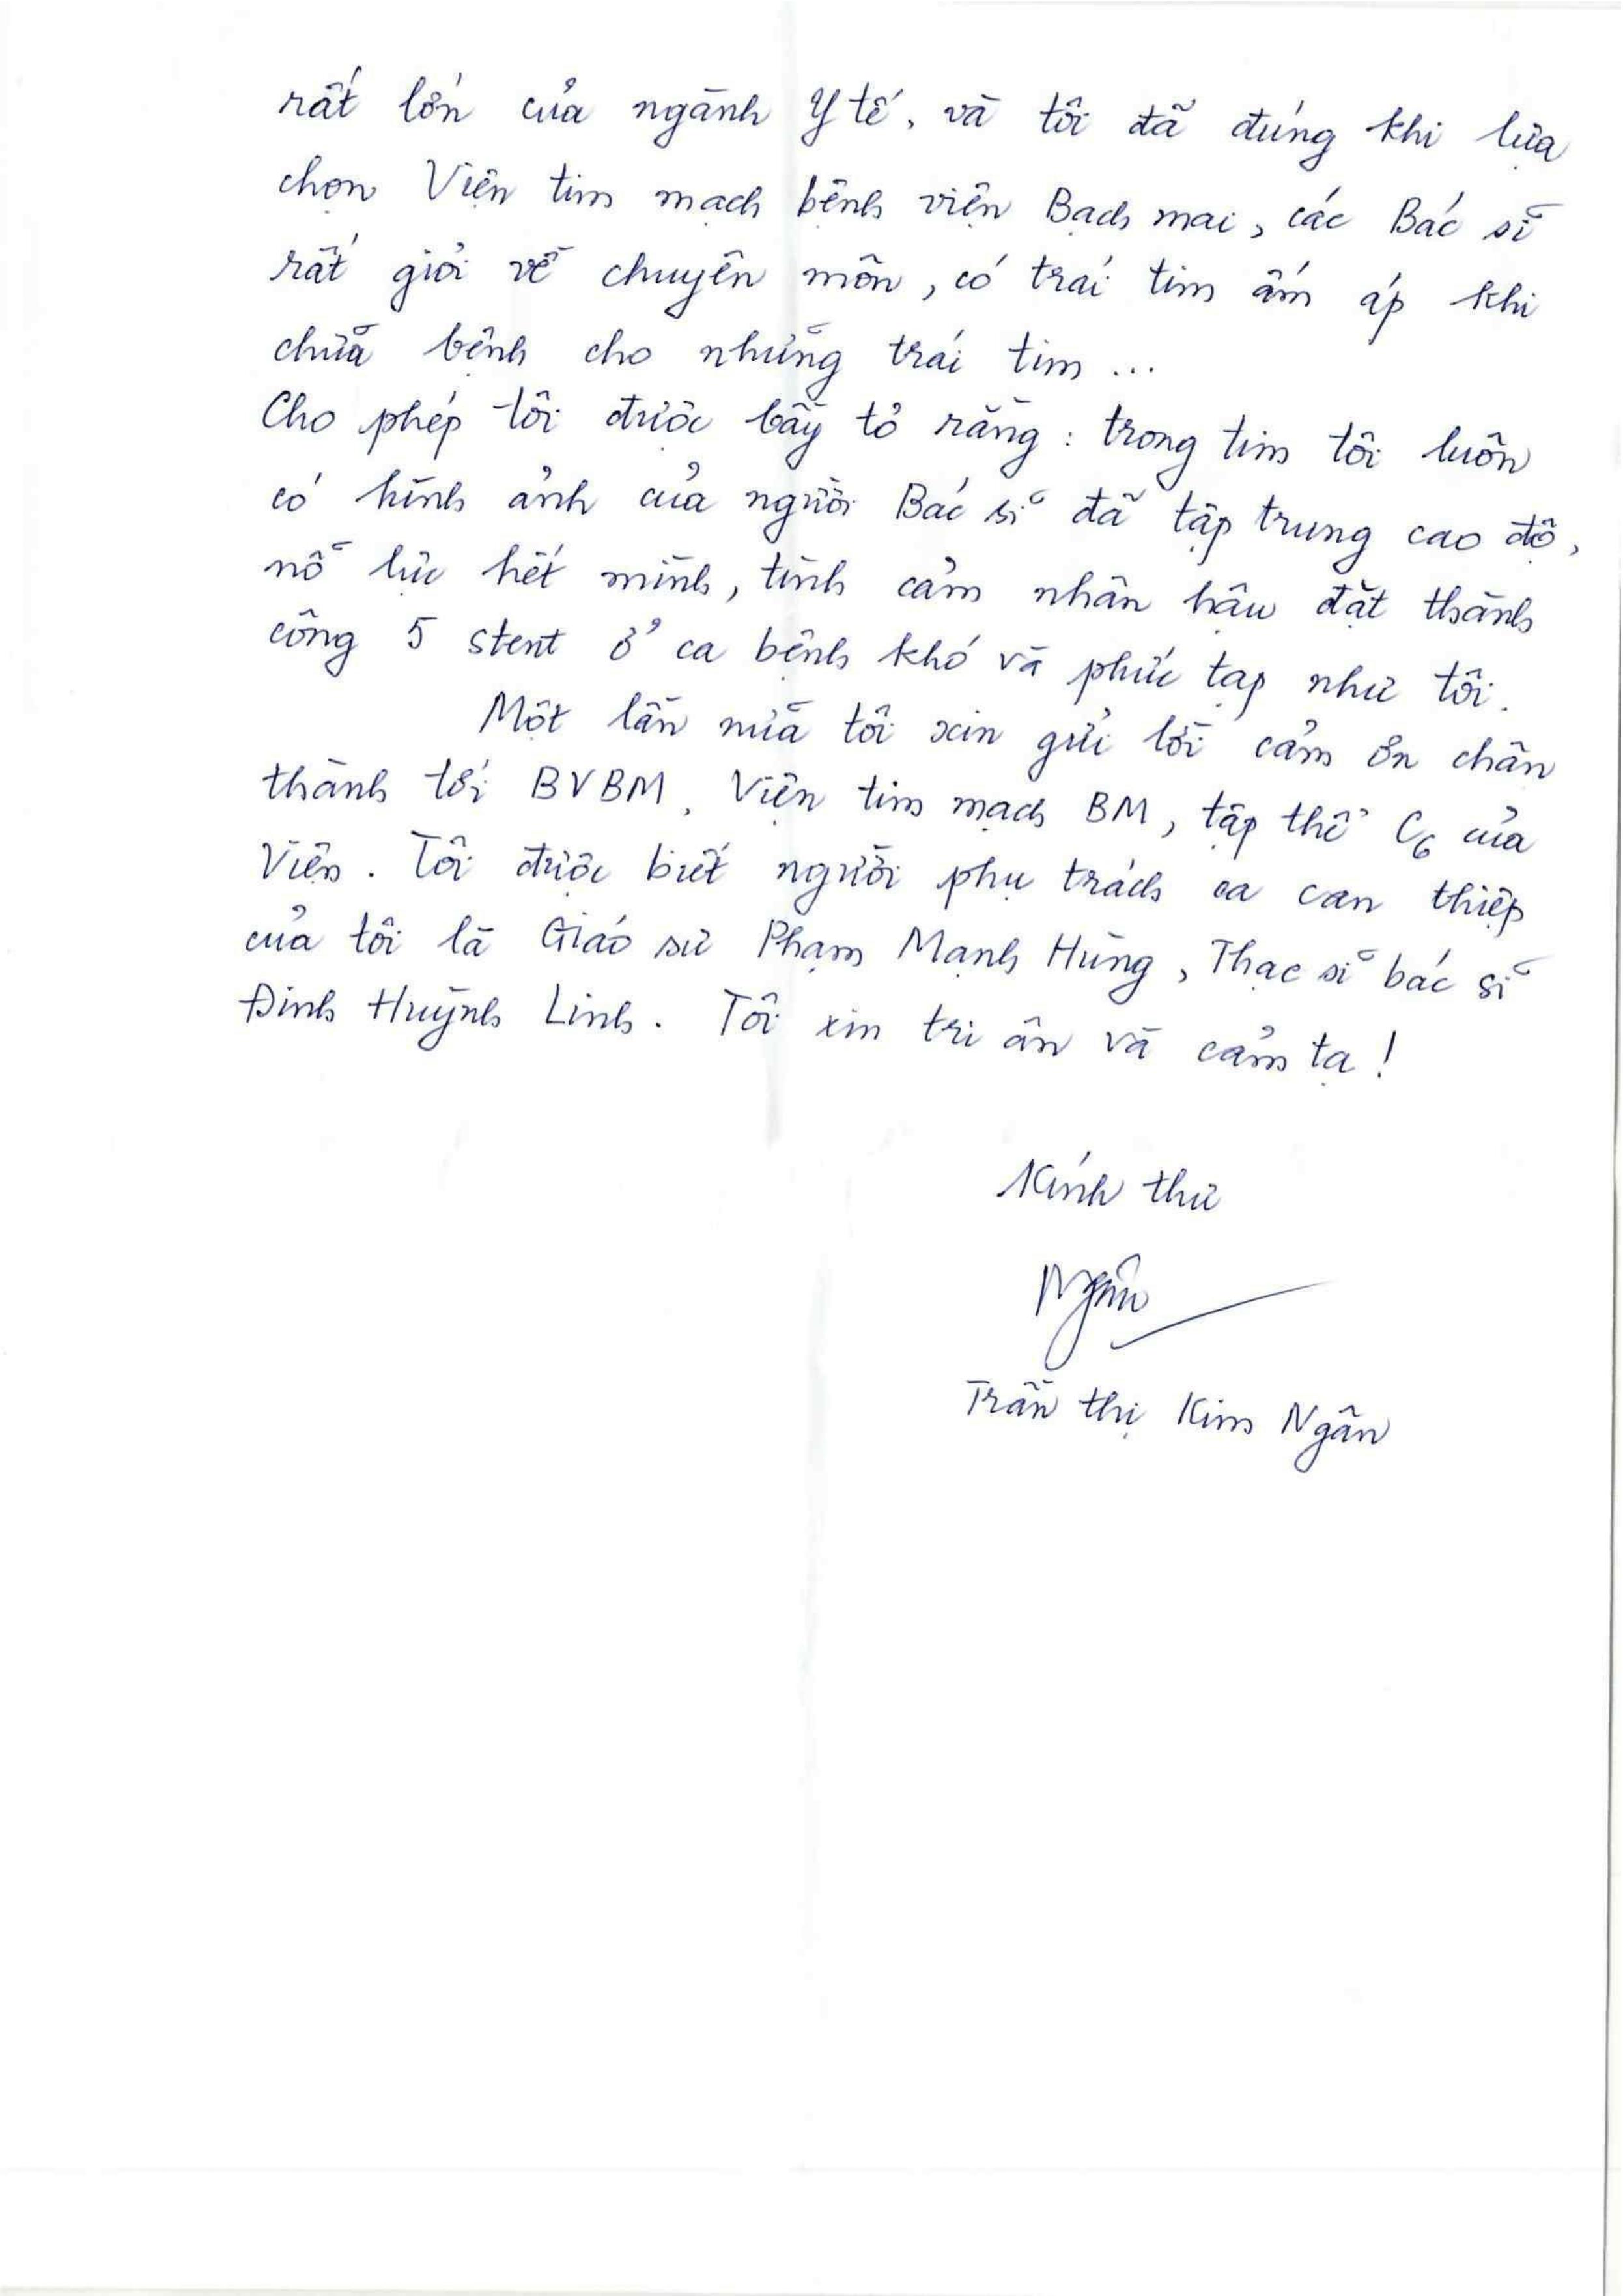 rất lớn của ngành Y tế, và tôi đã đúng khi lựa
chọn Viện tim mạch bệnh viện Bạch mai, các Bác sĩ
rất giỏi về chuyên môn, có trái tim ấm áp khi
chữa bệnh cho những trái tim ...
Cho phép tôi được bầy tỏ rằng: trong tim tôi luôn
có hình ảnh của người Bác sĩ đã tập trung cao độ,
nỗ lực hết mình, tình cảm nhân hậu đặt thành
công 5 stent ở ca bệnh khó và phức tạp như tôi.
Một lần nữa tôi xin gửi lời cảm ơn chân
thành tới BVBM, Viện tim mạch BM, tập thể C6 của
Viện. Tôi được biết người phụ trách ca can thiệp
của tôi là Giáo sư Phạm Mạnh Hùng, Thạc sĩ bác sĩ
Đinh Huỳnh Linh. Tôi xin tri ân và cảm tạ!
Kính thư
Ngân
Trần thị Kim Ngân